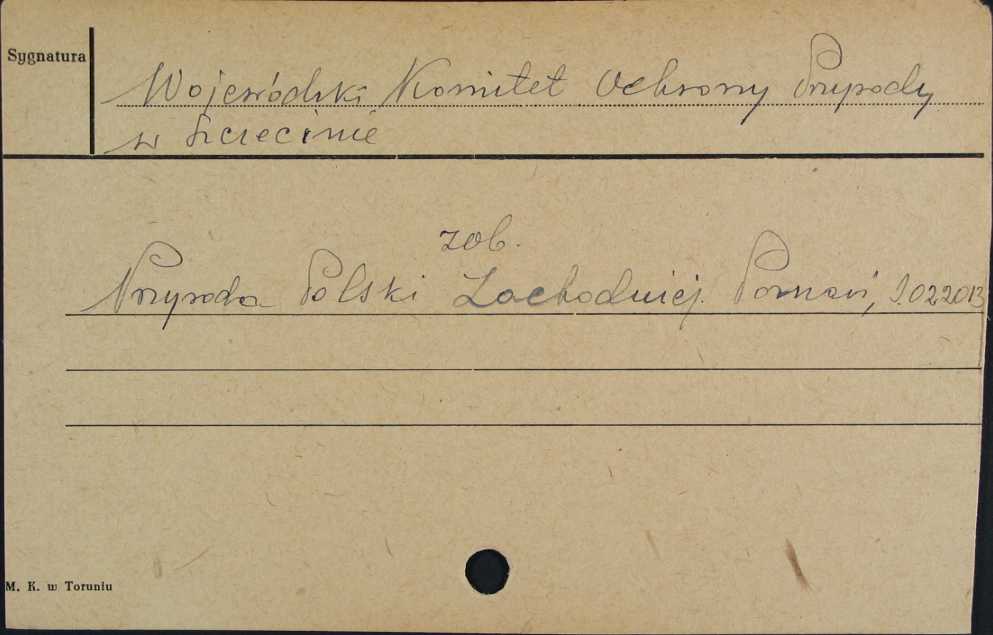 Sygnatura
Wojewódzki Komitet Ochrony Przyrody
w Szczecinie
zob.
Przyroda Polski Zachodniej. Poznań, P.022013
M. K. w Toruniu